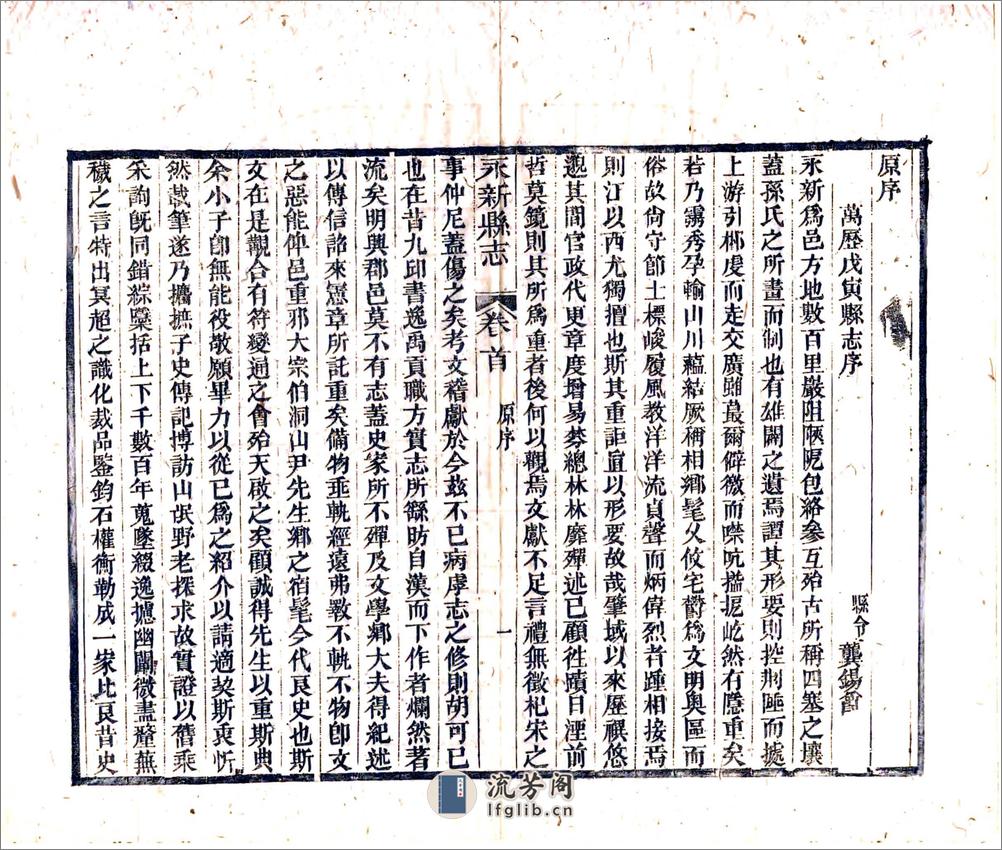 原序
萬歷戊寅縣志序
縣令龔錫爵
永新爲邑方地數百里巖阻陿阨包絡參互殆古所稱四塞之壤
蓋孫氏之所畫而制也有雄闢之遺焉譚其形要則控荆陲而據
上游引郴虔而走交廣虽蕞爾僻微而噤吭搤扼屹然有隱重矣
若乃霧秀孕輸山川蘊結厥稱相鄉髦乂攸宅鬱爲文明輿區而
俗故尙守節士標峻履風敎洋洋流貞聲而炳偉烈者踵相接焉
則江以西尤獨擅也斯其重詎直以形要故哉肇域以來歷禩悠
邈其間官政代更章度增易棼總林林靡殫述已顧徃蹟日湮前
哲莫鏡則其所爲重者後何以觀焉文獻不足言禮無徵杞宋之
永新縣志
卷首
原序
一
事仲尼蓋傷之矣考文稽獻於今茲不已病虖志之修則胡可已
也在昔九邱書逸禹貢職方實志所繇昉自漢而下作者爛然著
流矣明興郡邑莫不有志蓋史家所不殫及文學鄉大夫得紀述
以傳信詒來憲章所託重矣備物垂軌經遠弗斁不軌不物卽文
之惡能仰邑重邪大宗伯洞山尹先生鄉之宿髦今代良史也斯
文在是觀合有符變通之會殆天啟之矣顧誠得先生以重斯典
余小子卽無能役敬願畢力以從已爲之紹介以請適契斯衷忻
然載筆遂乃擔摭子史傳記博訪山氓野老探求故實證以舊乘
采詢旣同錯綜檃括上下千數百年蒐墜綴逸攄幽闡微盡釐蕪
穢之言特出冥超之識化裁品鑒鈞石權衡勒成一家比良昔史
流芳阁
lfglib.cn